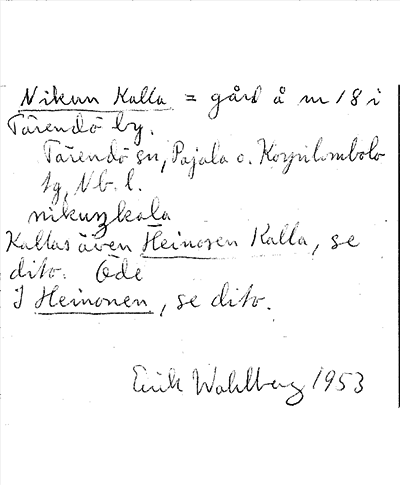 Nikun Kalla = gård å m 18 i
Tärendö by.
Tärendö sn, Pajala o. Korpilombolo
tg, Nb. l.
nikuŋkala
Kallas även Heinosen Kalla, se
dito. Öde
I Heinonen, se dito.
Erik Wahlberg 1953